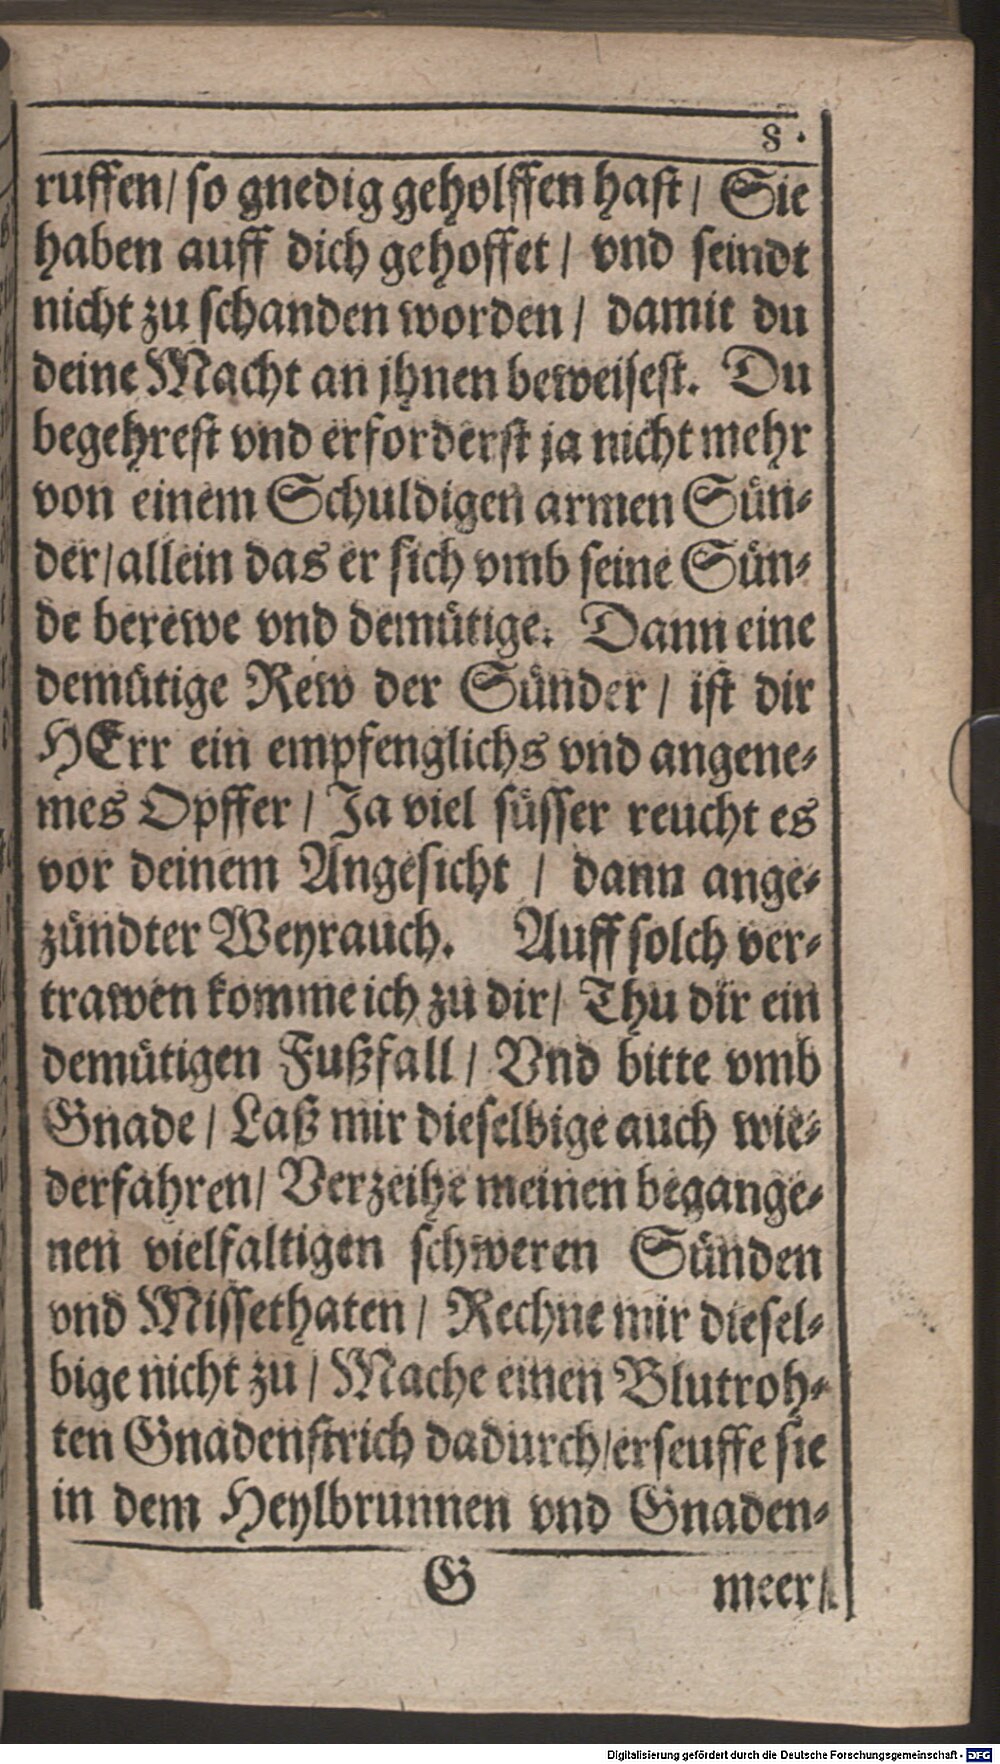 8.
ruffen/ so gnedig geholffen hast/ Sie
haben auff dich gehoffet/ vnd seindt
nicht zu schanden worden/ damit du
deine Macht an jhnen beweisest. Du
begehrest vnd erforderst ja nicht mehr
von einem Schuldigen armen Sün-
der/allein das er sich vmb seine Sün-
de berewe vnd demütige. Dann eine
demütige Rew der Sünder/ ist dir
HErr ein empfenglichs vnd angene-
mes Opffer/ Ja viel süsser reucht es
vor deinem Angesicht / dann ange-
zündter Weyrauch. Auff solch ver-
trawen komme ich zu dir/ Thu dir ein
demütigen Fußfall/ Vnd bitte vmb
Gnade/ Laß mir dieselbige auch wie-
derfahren/ Verzeihe meinen begange-
nen vielfaltigen schweren Sünden
vnd Missethaten/ Rechne mir diesel-
bige nicht zu/ Mache einen Blutroh-
ten Gnadenstrich dadurch/erseuffe sie
in dem Heylbrunnen vnd Gnaden-
G meer/
Digitalisierung gefördert durch die Deutsche Forschungsgemeinschaft - DFG